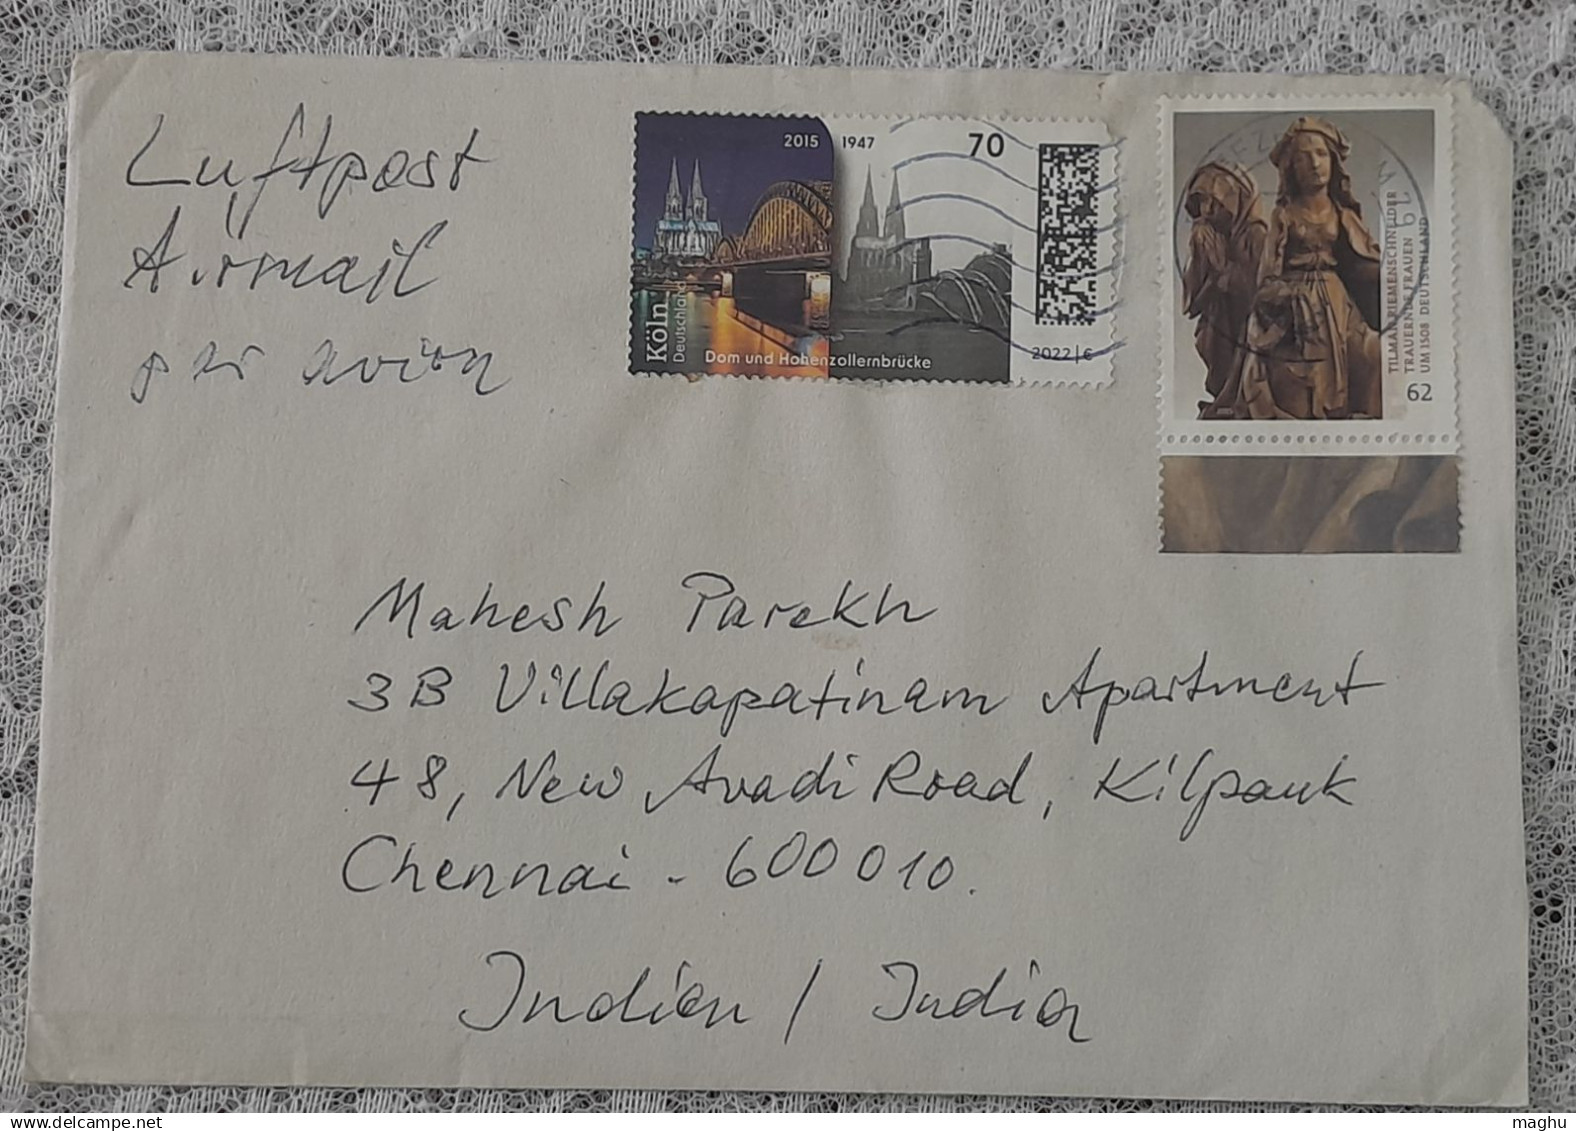 Luftpost
Airmail
par avion
2015 1947 70
Köln
Deutschland
Dom und Hohenzollernbrücke
2022|€
TILMAN RIEMENSCHNEIDER
TRAUERNDE FRAUEN
UM 1508 DEUTSCHLAND
62
Mahesh Parekh
3B Villakapatinam Apartment
48, New Avadi Road, Kilpauk
Chennai - 600 010.
Indien / India
maghu